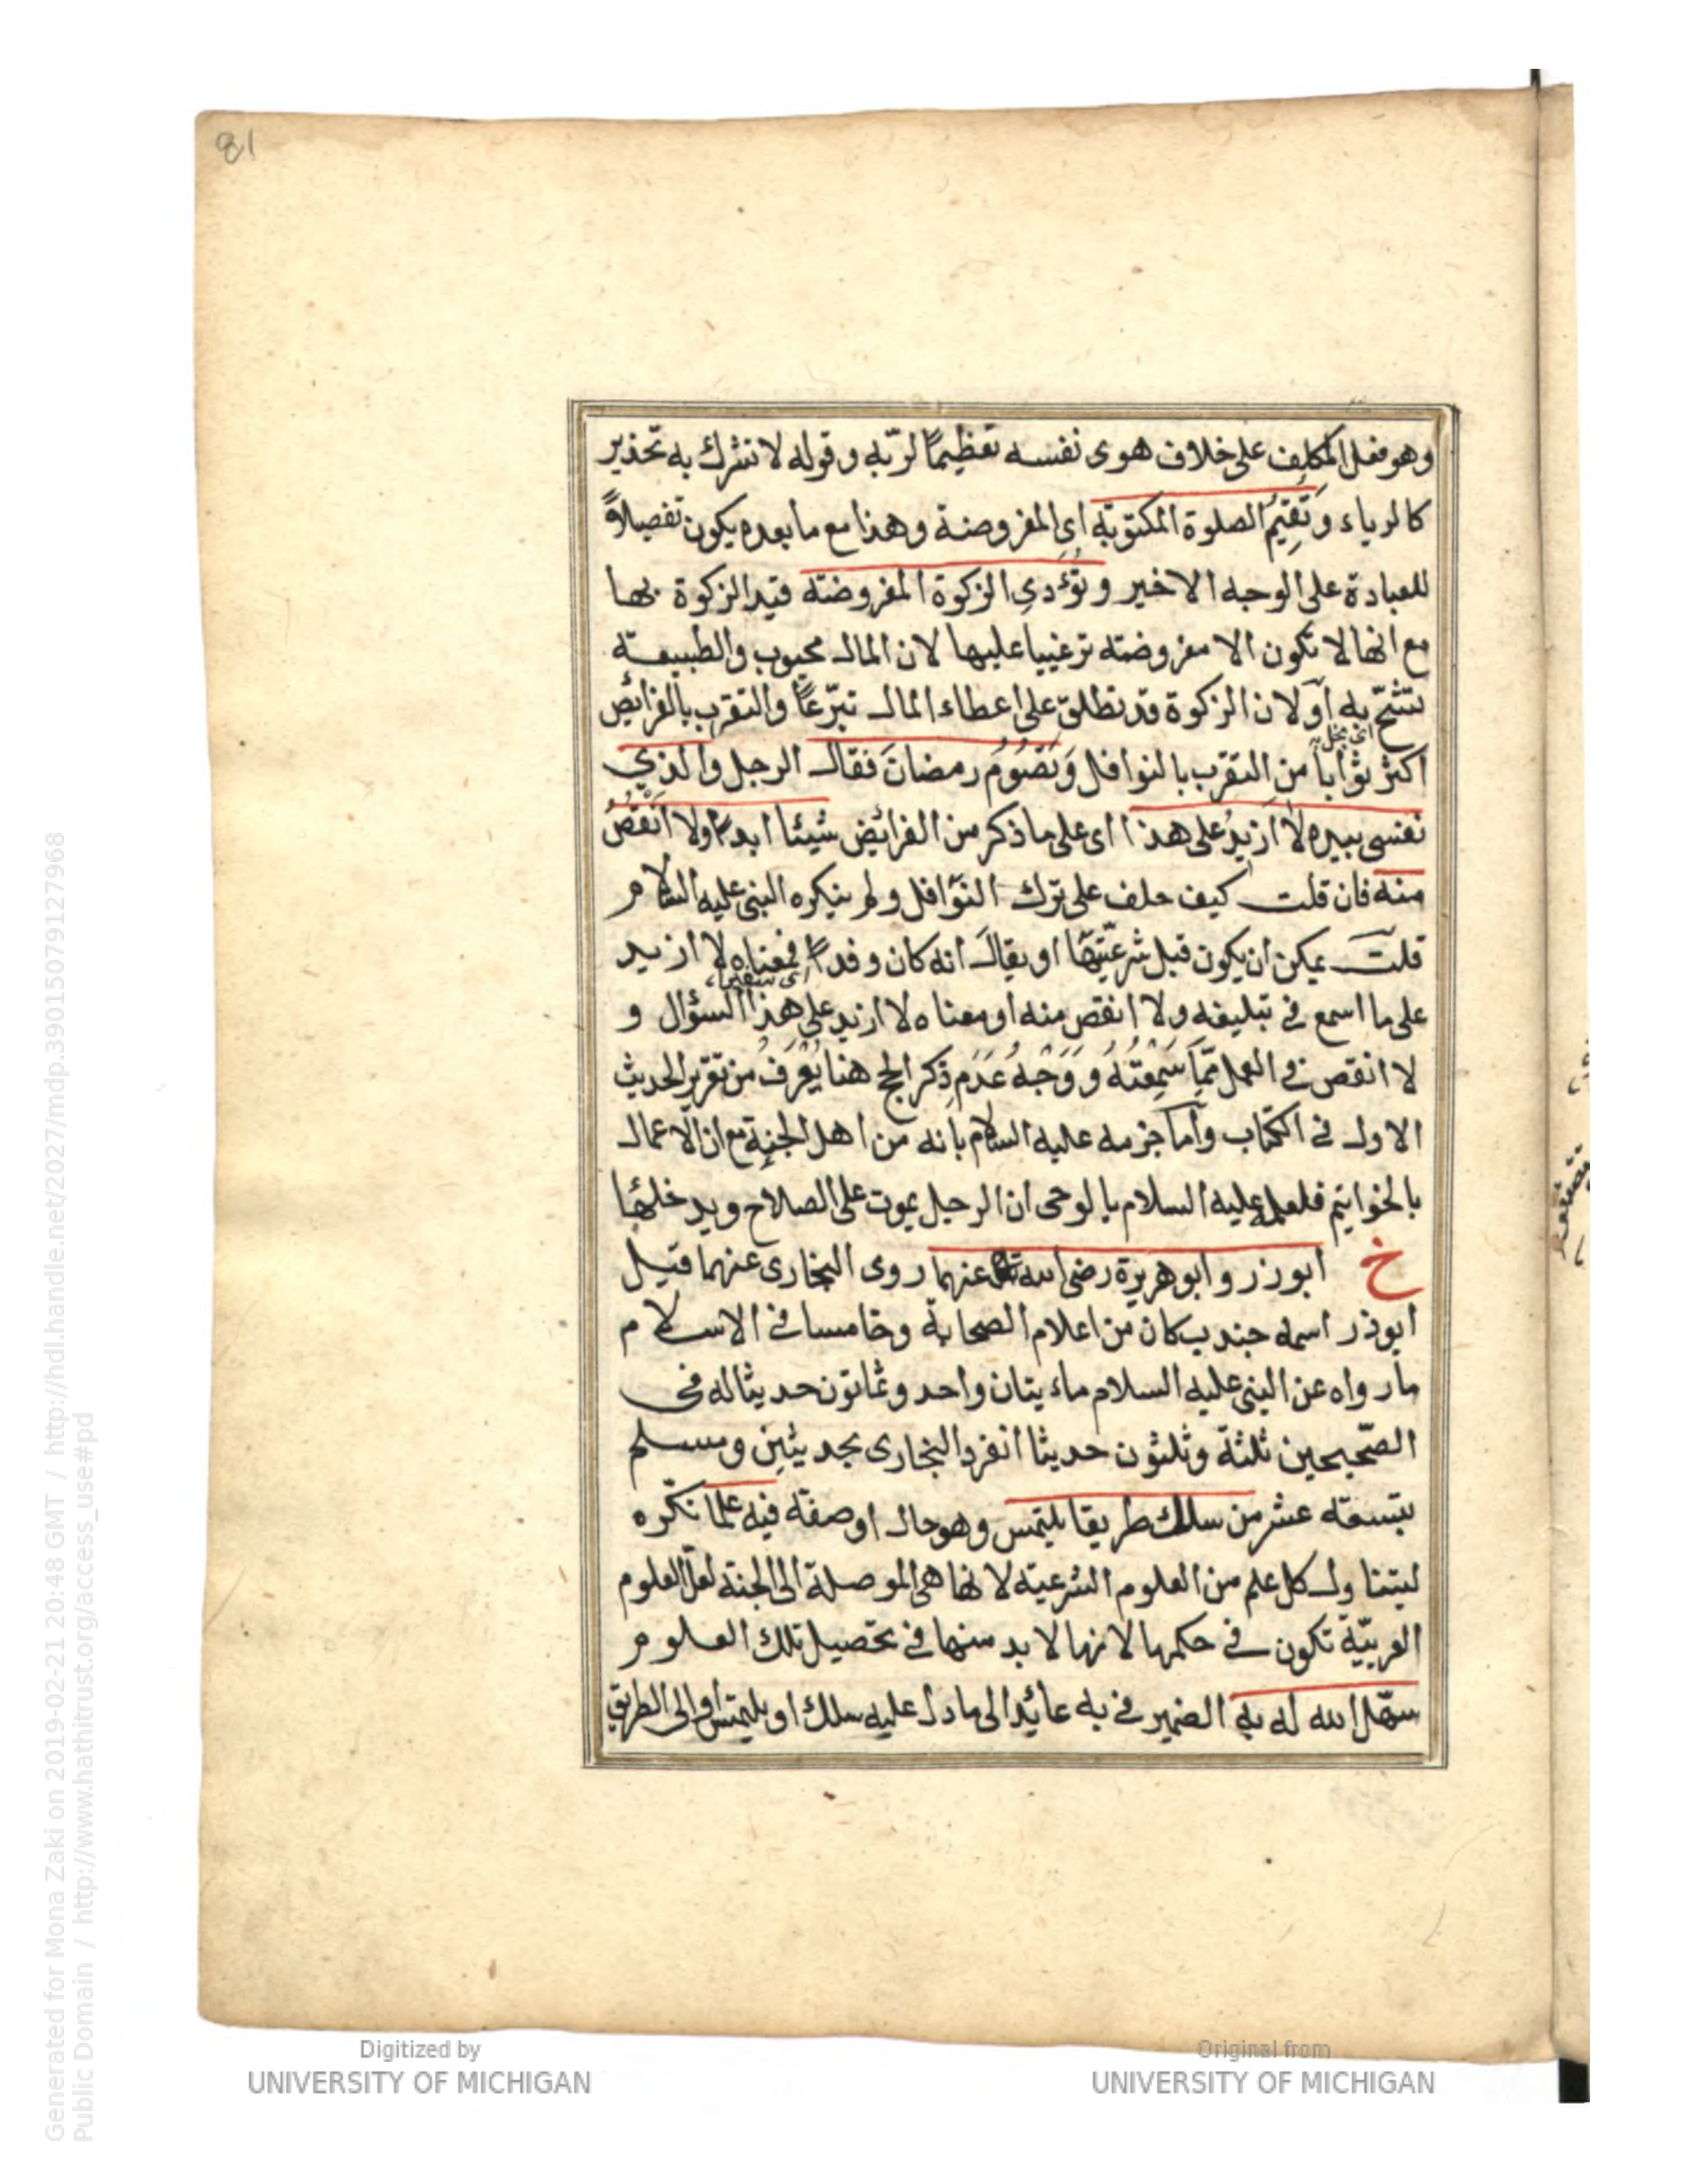 81
وهو فعل المكلف على خلاف هوى نفسه تعظيمًا لربّه وقوله لا تشرك به تحذير
كالرياء وَتُقِيمُ الصلوة المكتوبة اى المفروضة وهذا مع ما بعده يكون تفصيلاً
للعبادة على الوجه الاخير وتُؤدى الزكوة المفروضة قيد الزكوة بها
مع انها لا تكون الا مفروضة ترغيبا عليها لان المال محبوب والطبيعة
تشحّ به اَو لان الزكوة قد تطلق على اعطاء المال تبرّعًا والتقرب بالفرائض
اى بخل
اكثر ثوابا من التقرب بالنوافل وَتَصُومُ رمضانَ فقال الرجل والذي
نفسى بيده لا ازيدُ على هذا اى على ما ذكر من الفرائض شيئا ابدا ولا اَنْقُصُ
منه فان قلت كيف حلف على ترك النوافل ولم ينكره النبى عليه السلام
قلت يمكن ان يكون قبل شرعيّتها او يقال انه كان وفدًا فمعناه لا ازيد
على ما اسمع فى تبليغه ولا انقص منه او معناه لا ازيد على هذا السؤال و
لا انقص فى العمل ممّا سَمِعْتُهُ وَوَجْهُ عَدَمِ ذِكر الحج هنا يُعْرَفُ من تقرير الحديث
الاول فى الكتاب وأما جزمه عليه السلام بانه من اهل الجنة مع ان الاعمال
بالخواتيم فلعله عليه السلام بالوحى ان الرجل يموت على الصلاح ويدخلها
خ ابوذر وابو هريرة رضى الله عنهما روى البخارى عنهما قيل
ابوذر اسمه جندب كان من اعلام الصحابة وخامسا فى الاسلام
ما رواه عن النبى عليه السلام مائيتان واحد وثمانون حديثا له فى
الصّحيحين ثلثة وثلثون حديثا انفرد البخارى بحديثين ومسلم
بتسعة عشر من سلك طريقا يلتمس وهو حال او صفة فيه علما نكّره
ليتناول كل علم من العلوم الشرعيّة لانها هى الموصلة الى الجنة لعل العلوم
العربيّة تكون فى حكمها لانها لا بد منها فى تحصيل تلك العلوم
سهّل الله له به الضمير فى به عائد الى ما دل عليه سلك او يلتمس او الى الطريق
Digitized by
UNIVERSITY OF MICHIGAN
Original from
UNIVERSITY OF MICHIGAN
Generated for Mona Zaki on 2019-02-21 20:48 GMT / http://hdl.handle.net/2027/mdp.39015079127968
Public Domain / http://www.hathitrust.org/access_use#pd